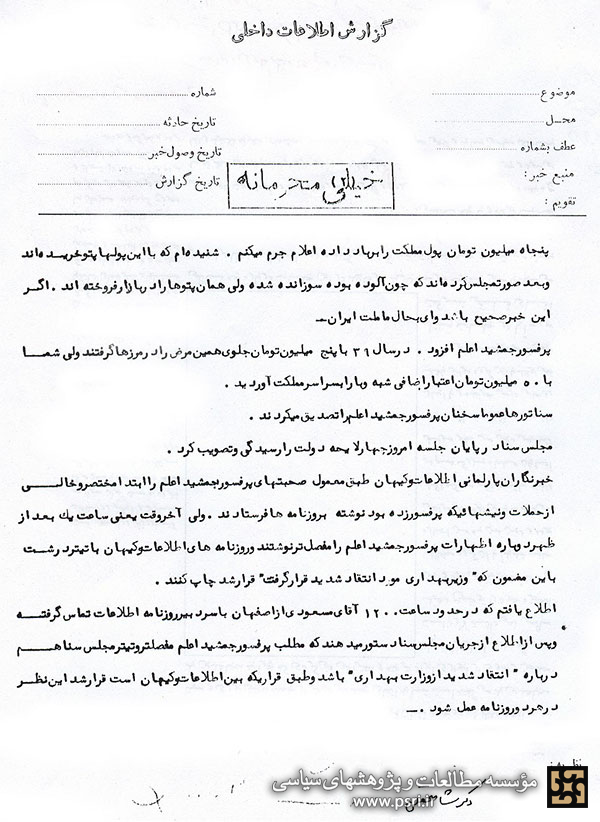 گزارش اطلاعات داخلی
موضوع
شماره
محـل
تاریخ حادثه
عطف بشماره
تاریخ وصول خبر
منبع خبر :
تاریخ گزارش
تقویم :
خیلی محرمانه
(۲)
پنجاه میلیون تومان پول مملکت را برباد داده اعلام جرم میکنم . شنیده‌ام که با این پولها پتو خریده‌اند
وبعد صورتمجلس کرده‌اند که چون آلوده بوده سوزانده شده ولی همان پتوها را در بازار فروخته اند . اگر
این خبر صحیح باشد وای بحال ما ملت ایران ــ
پرفسور جمشید اعلم افزود . در سال ۳۹ با پنج میلیون تومان جلوی همین مرض را در مرزها گرفتند ولی شما
با ۵۰ میلیون تومان اعتبار اضافی شبه وبا را بسراسر مملکت آوردید .
سناتورها عموما سخنان پرفسور جمشید اعلم را تصدیق میکردند .
مجلس سنا در پایان جلسه امروز چهار لایحه دولت را رسیدگی و تصویب کرد .
خبرنگاران پارلمانی اطلاعات و کیهان طبق معمول صحبتهای پرفسور جمشید اعلم را ابتدا مختصر و خالـــی
از حملات و نیشهائیکه پرفسور زده بود نوشته بروزنامه ها فرستادند . ولی آخر وقت یعنی ساعت یك بعد از
ظهر دوباره اظهارات پرفسور جمشید اعلم را مفصل تر نوشتند و روزنامه های اطلاعات و کیهان با تیتر درشت
باین مضمون که " وزیر بهداری مورد انتقاد شدید قرار گرفت" قرار شد چاپ کنند .
اطلاع یافتم که در حدود ساعت ۱۲۰۰ آقای مسعودی از اصفهان با سردبیر روزنامه اطلاعات تماس گرفتــه
و پس از اطلاع از جریان مجلس سنا دستور میدهند که مطلب پرفسور جمشید اعلم مفصلتر و تیتر مجلس سنا هـــم
درباره " انتقاد شدید از وزارت بهداری" باشد و طبق قراریکه بین اطلاعات و کیهان است قرار شد این نظر
در هر دو روزنامه عمل شود . ــ
مؤسسه مطالعات و پژوهشهای سیاسی
www.psri.ir